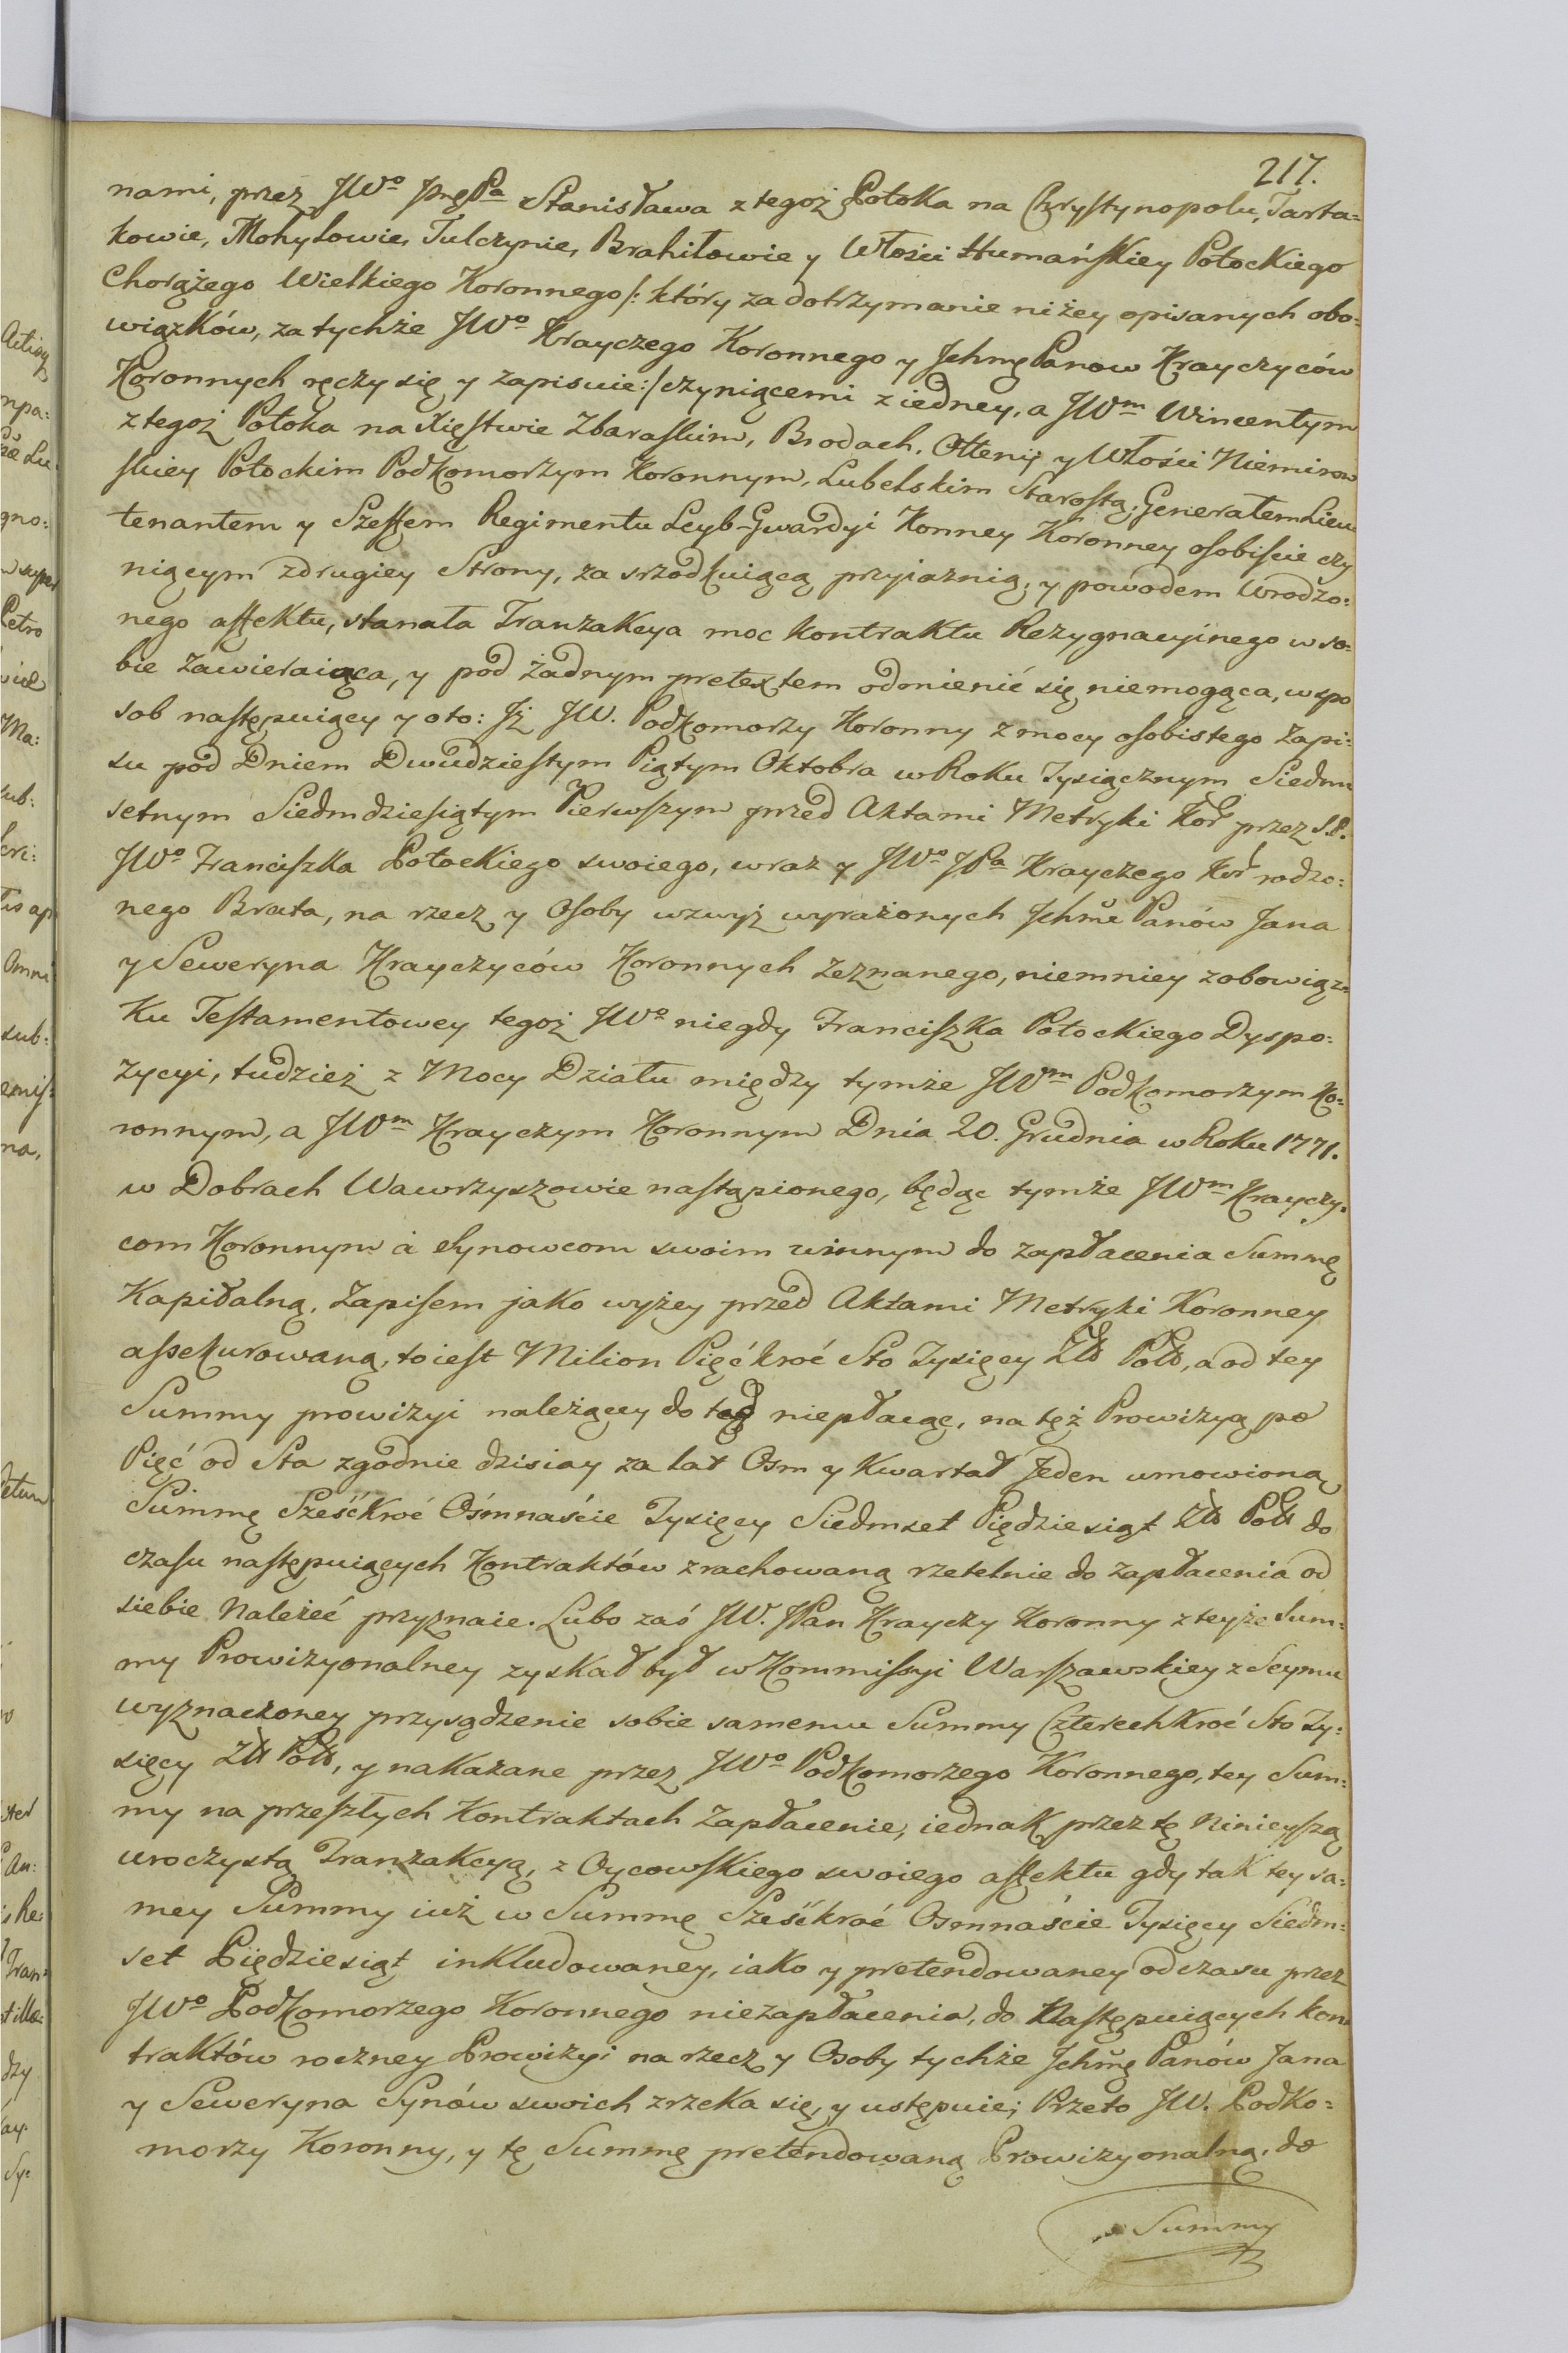 217.
nami, przez JWo Jmę Pa Stanisława z tegoż Potoka na Chrystynopolu, Tarta=
kowie, Mohylowie, Tulczynie, Brahiłowie y Włości Humańskiey Potockiego
Chorążego Wielkiego Koronnego /: który za dotrzymanie niżey opisanych obo=
wiązków, za tychże JWo Krayczego Koronnego y Jchmę Panow Krayczyców
Koronnych ręczy się y zapisuie :/ czyniącemi z iedney, a JWm Wincentym
z tegoż Potoka na Xięstwie Zbaraskim, Brodach, Ottenij y Włości Niemirow
skiey Potockim Podkomorzym Koronnym, Lubelskim Starostą, Generałem Lieu
tenantem y Szeffem Regimentu Leyb-Gwardyi Konney Koronney osobiście czy
niącym z drugiey Strony, za srzodkuiącą przyiaznią, y powodem wrodzo=
nego affektu, stanała Tranzakcya moc kontraktu Rezygnacyinego w so=
bie zawieraiąca, y pod żadnym pretextem odmienić się niemogąca, w spo
sob następuiący y oto: Jż JW. Podkomorzy Koronny z mocy osobistego Zapi=
su pod Dniem Dwudziestym Piątym Oktobra w Roku Tysiącznym Siedm
setnym Siedmdziesiątym Pierwszym przed Aktami Metryki Kor przez S.P.
JWo Franciszka Potockiego swoiego, wraz y JWo JPa Krayczego Kor rodzo=
nego Brata, na rzecz y Osoby wzwyż wyrażonych Jchmę Panów Jana
y Seweryna Krayczyców Koronnych zeznanego, niemniey z obowiąz=
ku Testamentowey tegoż JWo niegdy Franciszka Potockiego Dyspo=
zycyi, tudzież z Mocy Działu między tymże JWm Podkomorzym Ko=
ronnym, a JWm Krayczym Koronnym Dnia 20. Grudnia w Roku 1771.
w Dobrach Wawrzyszowie nastąpionego, będąc tymże JWm Krayczy=
com Koronnym a Synowcom swoim winnym do zapłacenia Summę
Kapitalną, Zapisem jako wyżey przed Aktami Metryki Koronney
assekurowaną, to iest Milion Pięćkroć Sto Tysięcy Złł Poll, a od tey
Summy prowizyi należącey do tąd niepłacąc, na tęż Prowizyą po
Pięć od Sta zgodnie dzisiay za lat Osm y Kwartał Jeden umowioną
Summę Sześćkroć Ośmnaście Tysięcy Siedmset Pięćdziesiąt Złł Poll do
czasu następuiących Kontraktów zrachowaną rzetelnie do zapłacenia od
siebie Należeć przyznaie. Lubo zaś JW. JPan Krayczy Koronny z teyże Sum=
my Prowizyonalney zyskał był w Kommissyi Warszawskiey z Seymu
wyznaczoney przysądzenie sobie samemu Summy Czterechkroć Sto Ty=
sięcy Złł Poll, y nakazane przez JWo Podkomorzego Koronnego, tey Sum=
my na przeszłych Kontraktach Zapłacenie, iednak przez tę Ninieyszą
uroczystą Tranzakcyą, z Oycowskiego swoiego affektu gdy tak tey sa=
mey Summy iuż w Summę Sześćkroć Osmnaście Tysięcy Siedm=
set Pięćdziesiąt inkludowaney, iako y pretendowaney od czasu przez
JWo Podkomorzego Koronnego niezapłacenia, do Następuiących kon
traktów roczney Prowizyi na rzecz y Osoby tychże Jchmę Panów Jana
y Seweryna Synów swoich zrzeka się, y ustępuie; Przeto JW. Podko=
morzy Koronny, y tę Summę pretendowaną Prowizyonalną, do
Summy